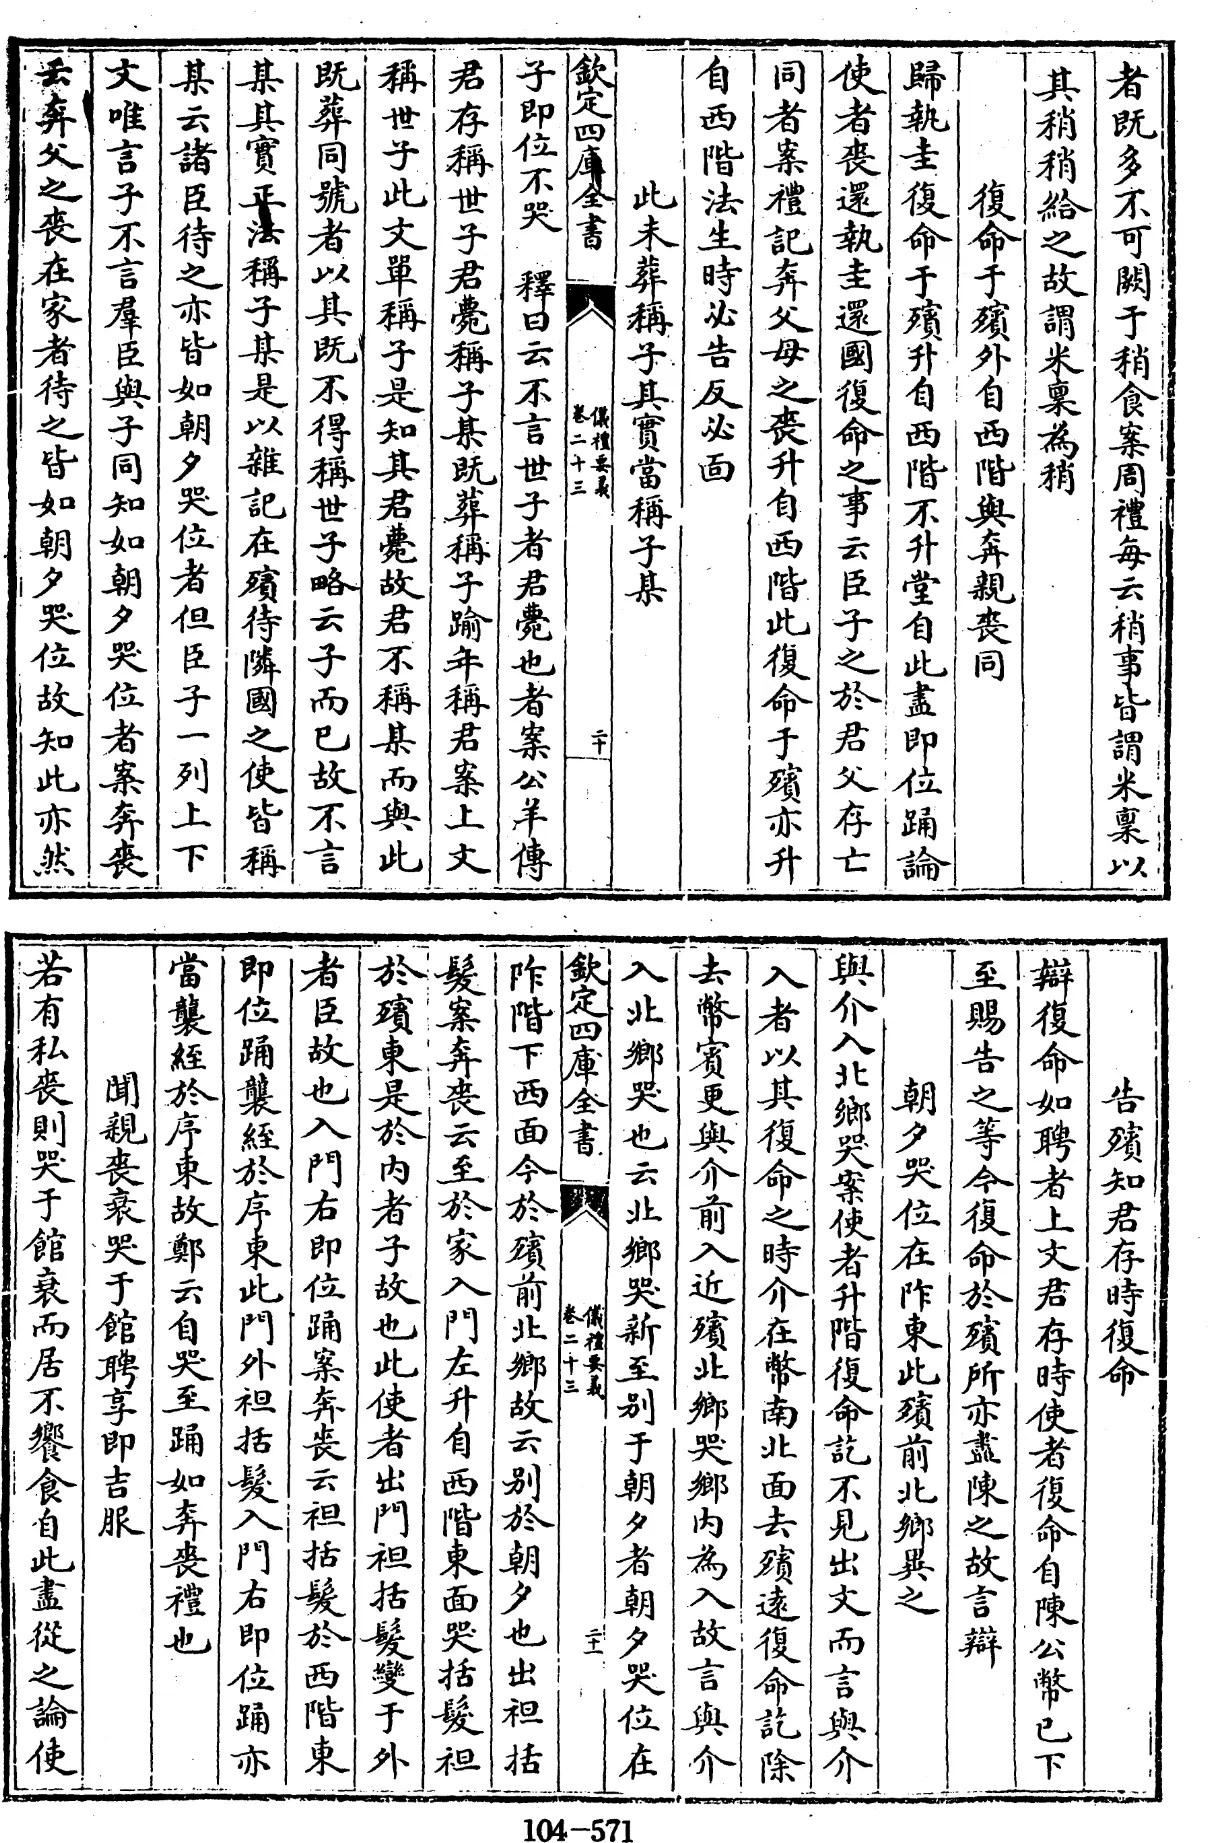 者既多不可闕于稍食案周禮每云稍事皆謂米稟以
其稍稍給之故謂米稟為稍
復命于殯外自西階與奔親喪同
歸執圭復命于殯升自西階不升堂自此盡即位踊論
使者喪還執圭還國復命之事云臣子之於君父存亡
同者案禮記奔父母之喪升自西階此復命于殯亦升
自西階法生時必告反必面
此未葬稱子其實當稱子某
欽定四庫全書
儀禮要義
卷二十三
二十
子即位不哭 釋曰云不言世子者君薨也者案公羊傳
君存稱世子君薨稱子某既葬稱子踰年稱君案上文
稱世子此文單稱子是知其君薨故君不稱某而與此
既葬同號者以其既不得稱世子略云子而已故不言
某其實正法稱子某是以雜記在殯待隣國之使皆稱
某云諸臣待之亦皆如朝夕哭位者但臣子一列上下
文唯言子不言羣臣與子同知如朝夕哭位者案奔喪
云奔父之喪在家者待之皆如朝夕哭位故知此亦然
告殯知君存時復命
辯復命如聘者上文君存時使者復命自陳公幣已下
至賜告之等今復命於殯所亦盡陳之故言辯
朝夕哭位在阼東此殯前北鄉異之
與介入北鄉哭案使者升階復命訖不見出文而言與介
入者以其復命之時介在幣南北面去殯遠復命訖除
去幣賓更與介前入近殯北鄉哭鄉内為入故言與介
入北鄉哭也云北鄉哭新至別于朝夕者朝夕哭位在
欽定四庫全書
儀禮要義
卷二十三
二十一
阼階下西面今於殯前北鄉故云別於朝夕也出袒括
髮案奔喪云至於家入門左升自西階東面哭括髮袒
於殯東是於内者子故也此使者出門袒括髮變于外
者臣故也入門右即位踊案奔喪云袒括髮於西階東
即位踊襲絰於序東此門外袒括髮入門右即位踊亦
當襲絰於序東故鄭云自哭至踊如奔喪禮也
聞親喪衰哭于館聘享即吉服
若有私喪則哭于館衰而居不饗食自此盡從之論使
104-571